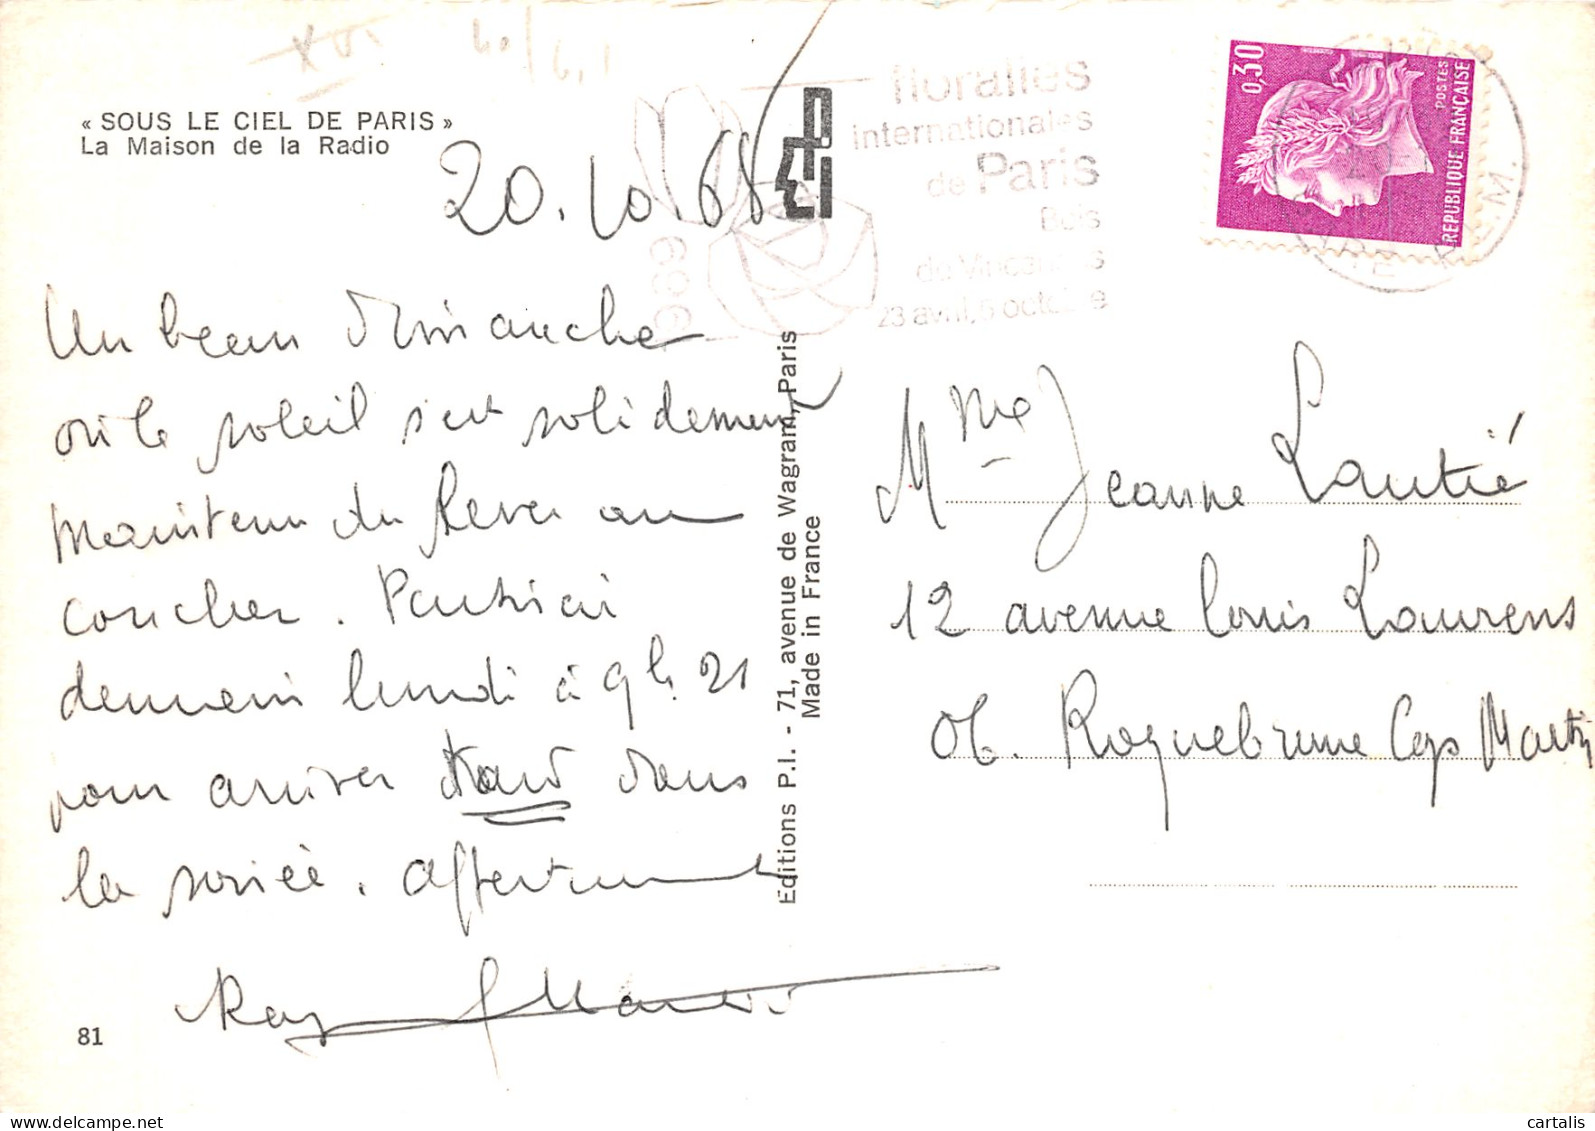 « SOUS LE CIEL DE PARIS »
La Maison de la Radio
20.10.68
Un beau dimanche
où le soleil s'est solidement
maintenu du lever au
coucher. Partirai
demain lundi à 9h.21
pour arriver tard dans
la soirée. Affectueusement
Ray
81
Editions P.I. - 71, avenue de Wagram, Paris
Made in France
floralies
internationales
de Paris
Bois
de Vincennes
23 avril, 5 octobre
1969
0,30
POSTES
REPUBLIQUE FRANÇAISE
Mme Jeanne Lautié
12 avenue Louis Laurens
06. Roquebrune Cap Martin
cartalis